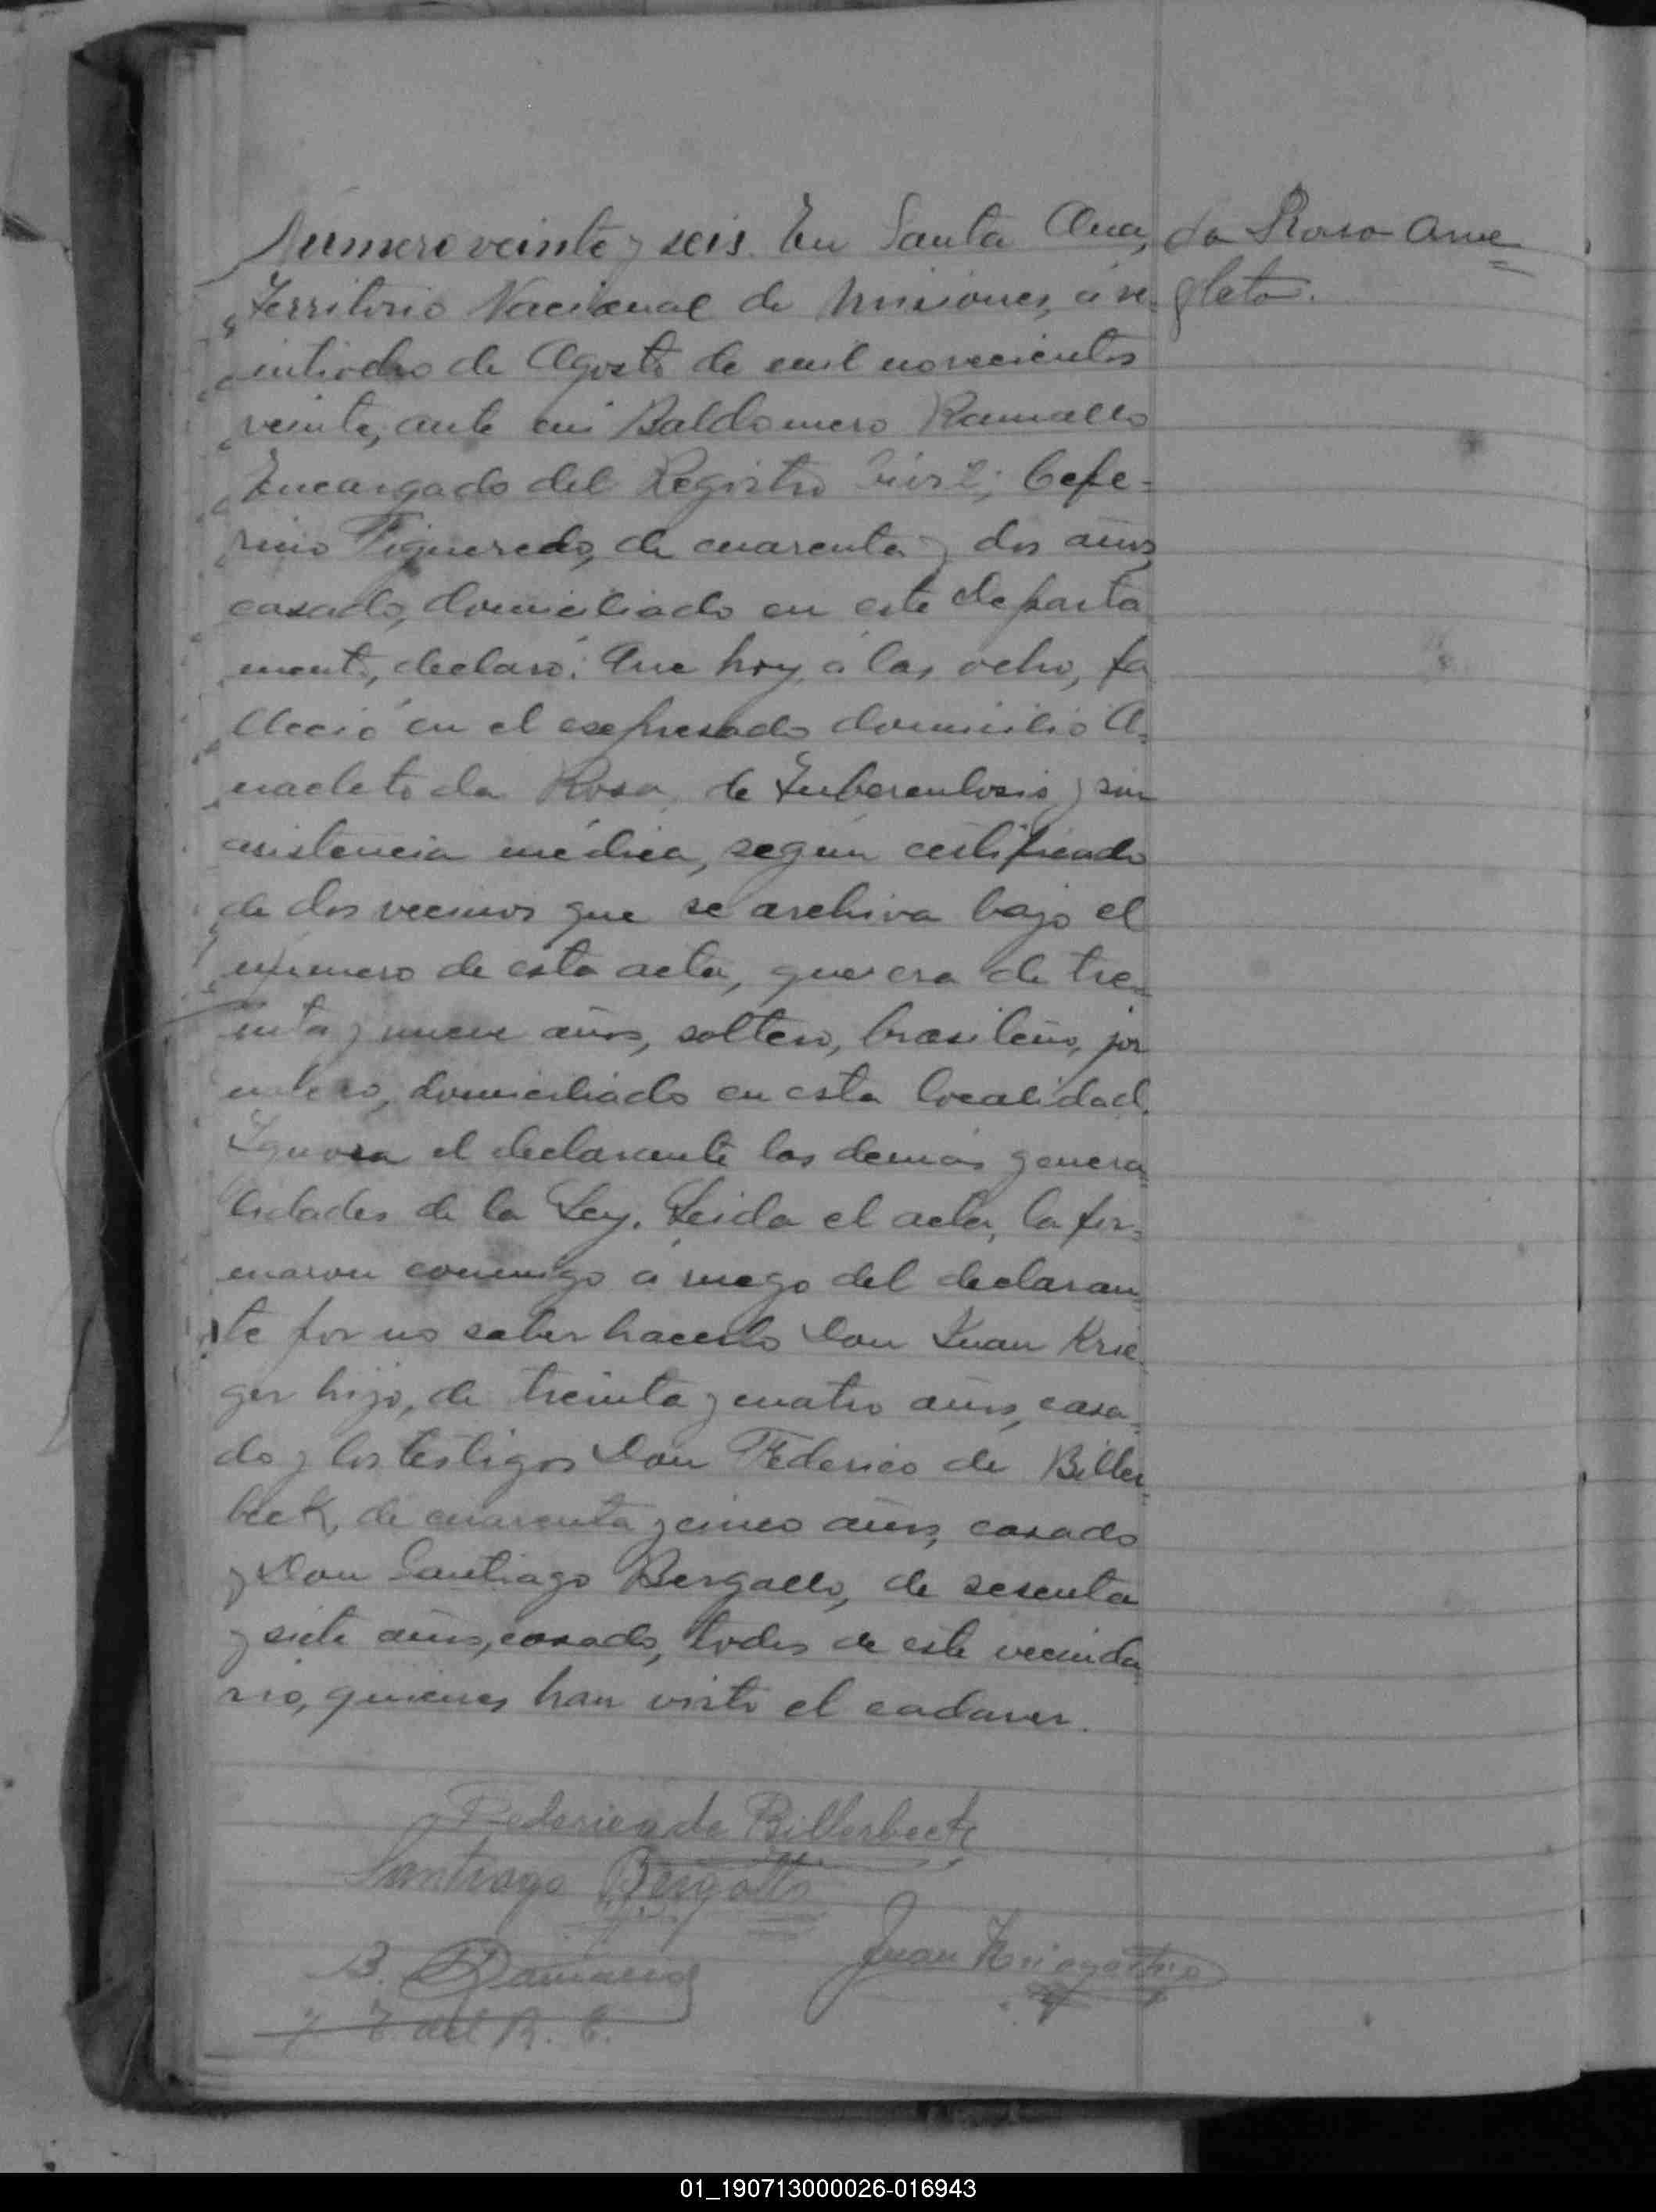 Número veinte y seis. En Santa Ana,
da Rosa Ana=
cleto.
Territorio Nacional de Misiones, á ve-
intiocho de Agosto de mil novecientos
veinte, ante mi Baldomero Ramallo
Encargado del Registro Civil; Cefe=
rino Figueredo, de cuarenta y dos años
casado, domiciliado en este departa
mento, declaró: Que hoy á las ocho, fa
lleció en el expresado domicilio A=
nacleto da Rosa, de Tuberculosis y sin
asistencia médica, según certificado
de dos vecinos que se archiva bajo el
número de esta acta, que era de tre=
inta y nueve años, soltero, brasileño, jor
nalero, domiciliado en esta localidad.
Ignora el declarante las demás genera=
lidades de la Ley. Leida el acta, la fir=
maron conmigo á ruego del declaran=
te por no saber hacerlo Don Juan Krie=
ger hijo, de treinta y cuatro años, casa=
do y los testigos Don Federico de Biller=
beck, de cuarenta y cinco años, casado
y Don Santiago Bergallo, de sesenta
y siete años, casado, todos de este vecinda
rio, quienes han visto el cadaver.
Federico de Billerbeck
Santiago Bergallo
B. Ramallo
Juan Krieger hijo
del R. C.
01_190713000026-016943